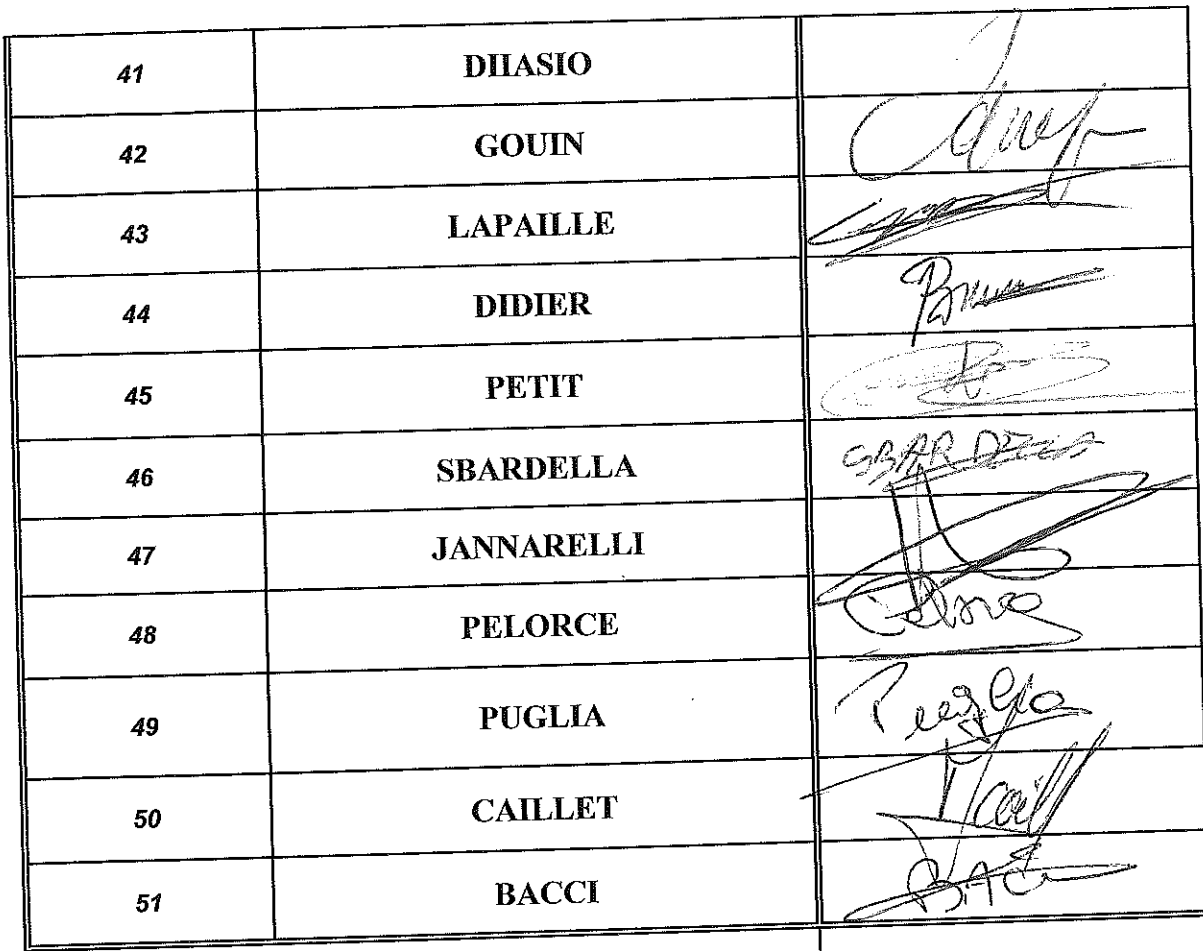 41 DIIASIO
42 GOUIN
43 LAPAILLE
44 DIDIER
45 PETIT
46 SBARDELLA SBARDELLA
47 JANNARELLI
48 PELORCE
49 PUGLIA Puglia
50 CAILLET
51 BACCI